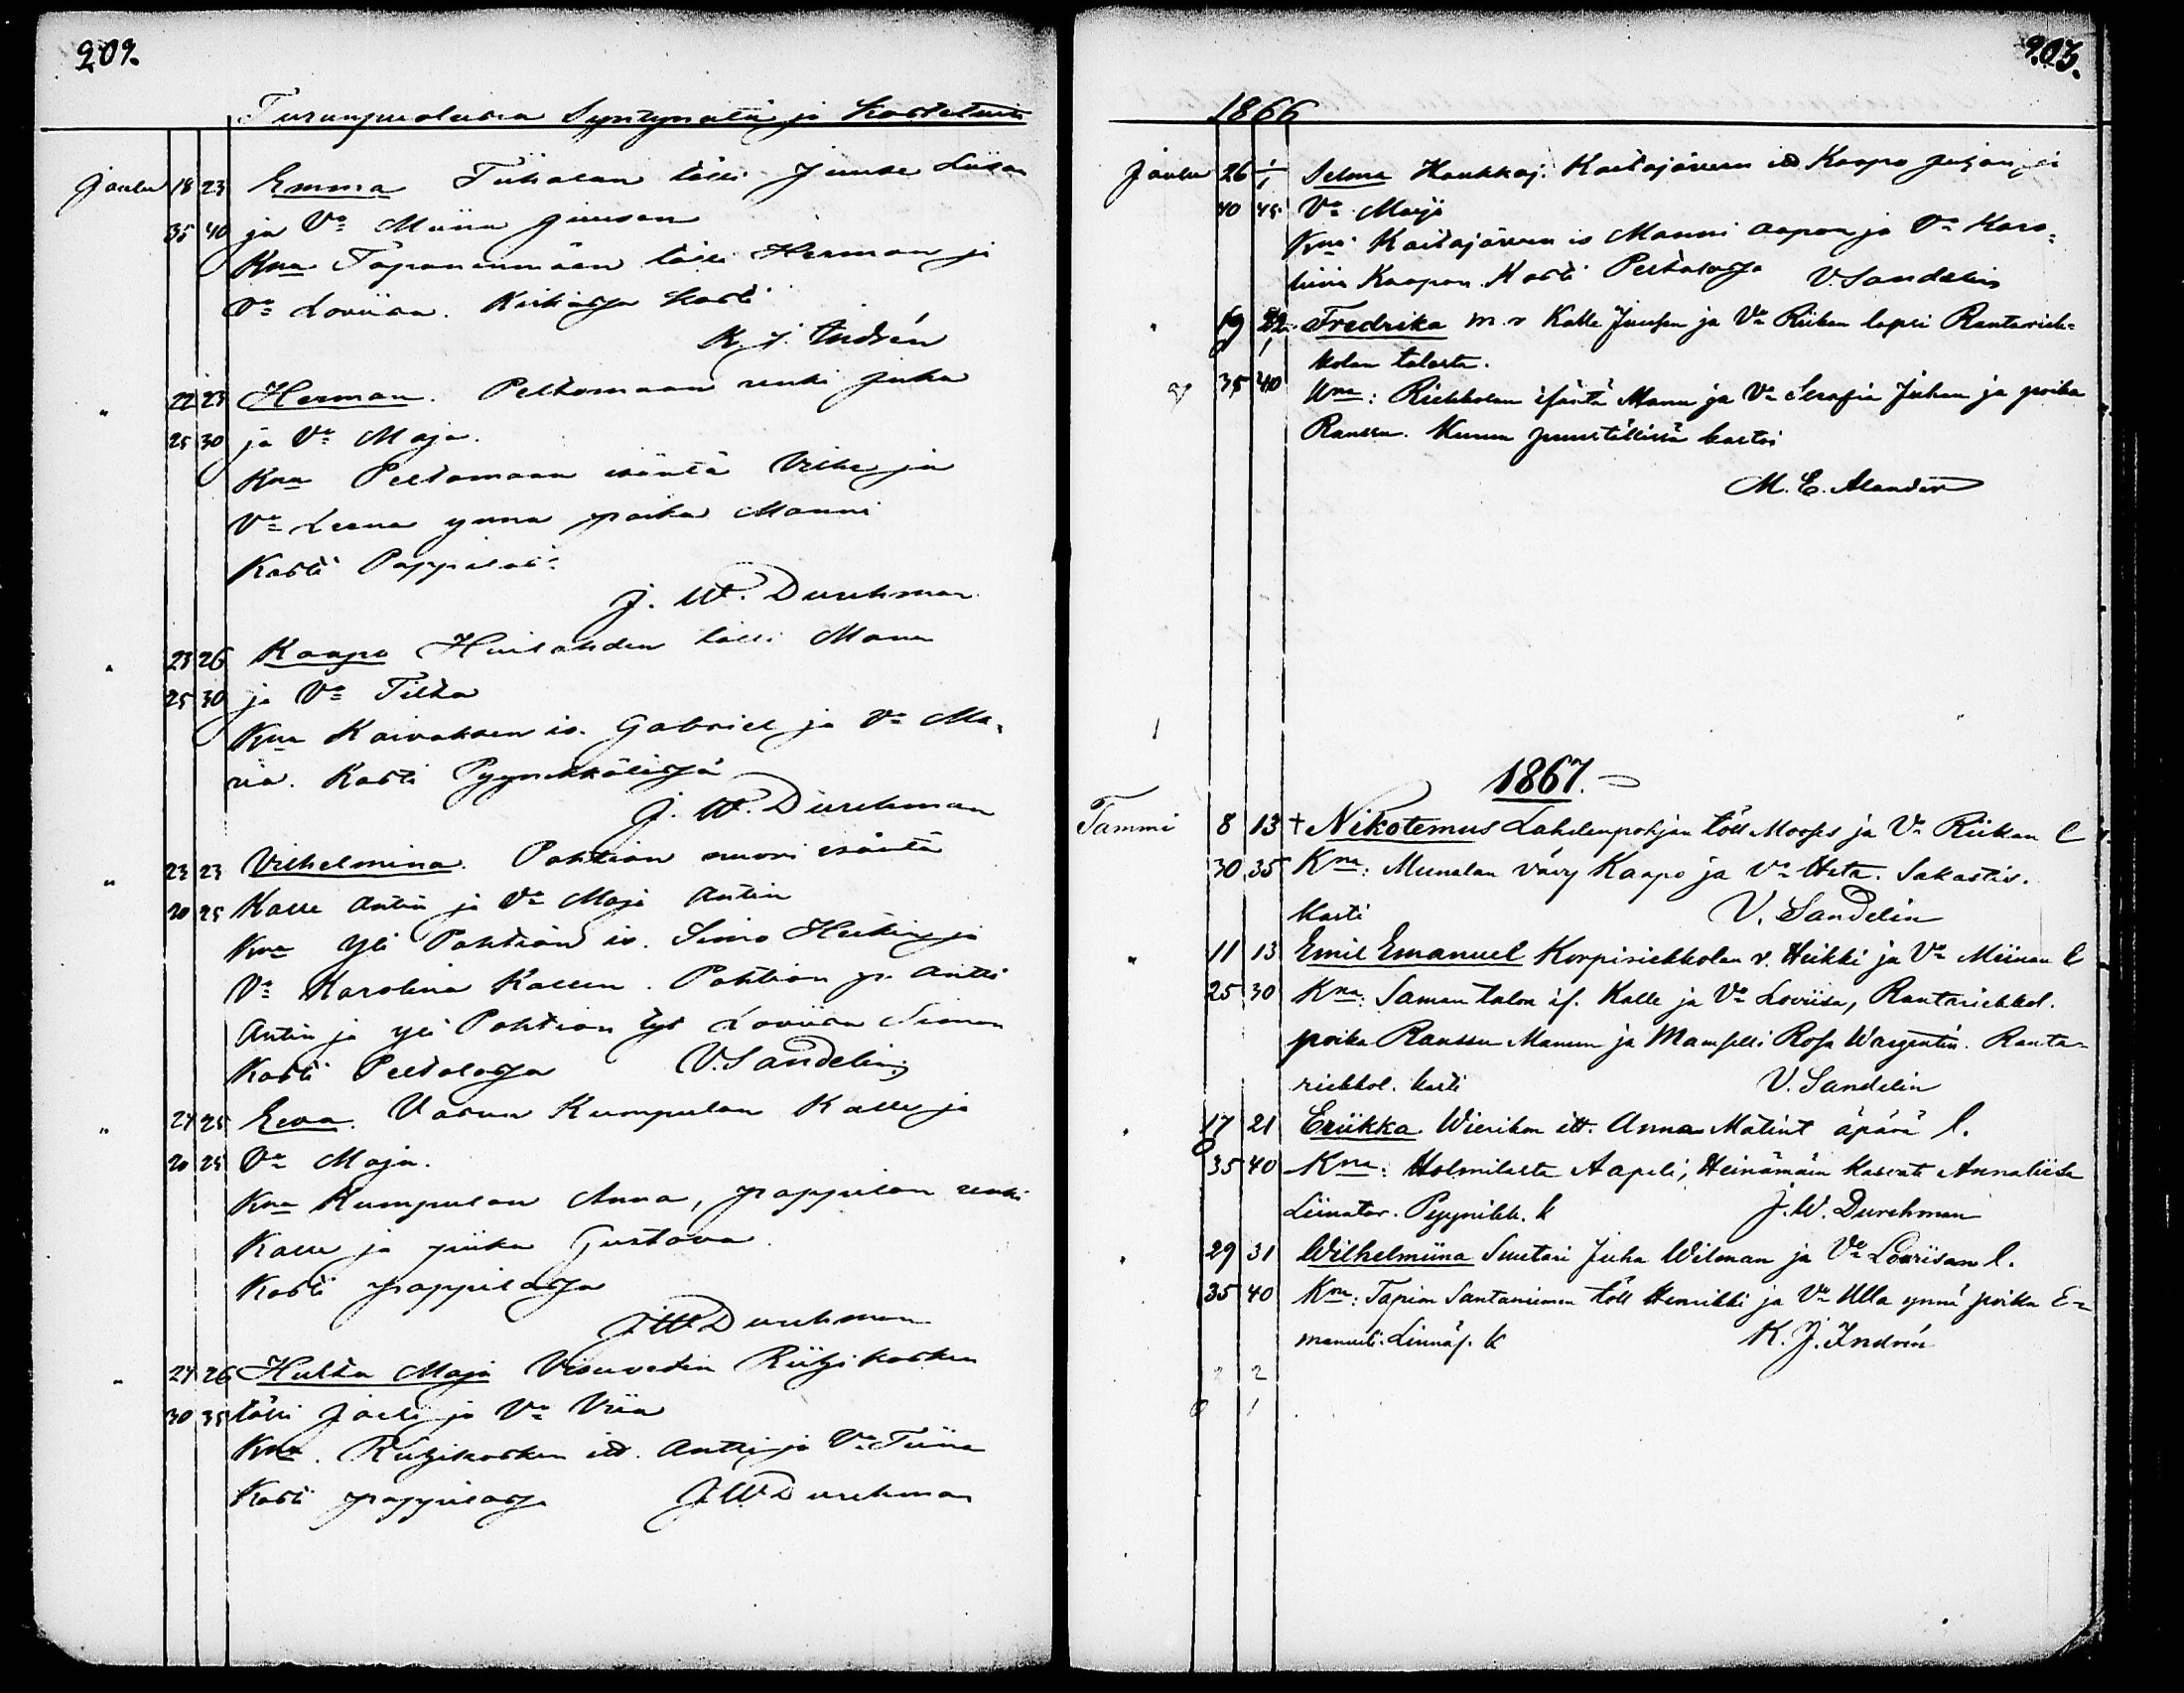 202.
Turunpuolessa Syntyneitä ja Kastetuita
Joulu 18 23 Emma Tiihalan tölli Juuse Liisan
35 40 ja Vo Miina Juusan
Kna Taponenmäen tölli Herman ja
Vo Loviisa. Kiikassa kasti
K. J. Indrén
" 22 23 Herman. Peltomaan renki Juha
25 30 ja Vo Maja.
Kna Peltomaan isäntä Vilhe ja
Vo Leena ynnä poika Manni
Kasti Pappilas:
J. W. Durchman
" 23 26 Kaapo Huilahden tölli Manu
25 30 ja Vo Tilta
Kna Kaivoksen is. Gabriel ja Vo Ma-
ria. Kasti Pyynikkälissä
J. W. Durchman
" 23 23 Vilhelmina. Pohtion nuori isäntä
20 25 Kalle Antin ja Vo Maja Antin
Kna Yli Pohtion is. Simo Heikin ja
Vo Karolina Kallen. Pohtion p. Antti
Antin ja Yli Pohtion tyt Loviisa Simon
Kasti Peltolassa V. Sandelin
" 24 25 Eeva. Vasun Kumpulan Kalle ja
20 25 Vo Maja.
Kna Kumpulan Anna, pappilan renki
Kalle ja piika Gustava.
Kasti pappilassa
J W Durchman
" 24 26 Hulta Maja Visuvedin Riihikosken
30 35 tölli Joeli ja Vo Viia
Kna. Riihikosken itt. Antti ja Vo Tiina
Kasti pappilassa J W Durchman
203.
1866
Joulu 26 1/1 Selma Haukkaj. Kaitajärven itt Kaapo Juhan ja
40 45 Vo Maija
Kna Kaitajärven is Manni Aapon ja Vo Karo-
liina Kaapon. Kasti Peltolassa V. Sandelin
19 Fredrika m. v Kalle Juusen ja Vo Riikan lapsi Rantarieh-
kolan talosta.
35 40 Kna: Riekkolan isäntä Manu ja Vo Serafia Juhan ja poika
Ranssu. Kunun puuställissä kastoi
M. E. Alander
1867.
Tammi 8 13 + Nikotemus Lahdenpohjan töll Mooses ja Vo Riikan l
30 35 Kna: Munalan vävy Kaapo ja Vo Heta. Sakastis.
kasti V. Sandelin
" 11 13 Emil Emanuel Korpiriekkolan v. Heikki ja Vo Miinan l
25 30 Kna: Saman talon is. Kalle ja Vo Loviisa, Rantariekkol.
poika Ranssu Manun ja Mamselli Rosa Wargentin. Ranta-
riekkol. kasti V. Sandelin
" 17 21 Eriikka Wierikon itt. Anna Matint äpärä l.
35 40 Kna: Holmilasta Aapeli, Heinämäen kasvati Annaliisa
Liinatar. Pyynikk. k J. W. Durchman
" 29 31 Wilhelmiina Suutari Juha Wilman ja Vo Loviisan l.
35 40 Kna: Tapion Santaniemen töll Henrikki ja Vo Ulla ynnä poika E-
manueli. Linnäs. k K. J. Indrén
2 2